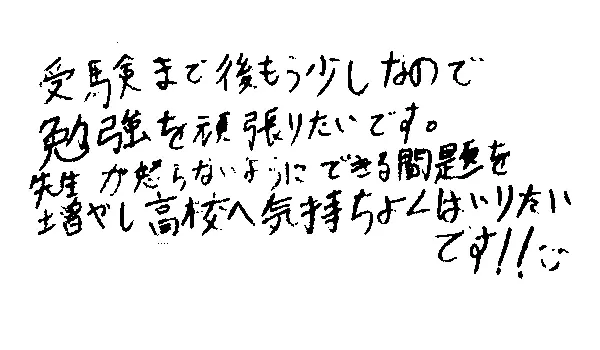 受験まで後もう少しなので
勉強を頑張りたいです。
先生が怒らないようにできる問題を
増やし高校へ気持ちよくはいりたい
です!!